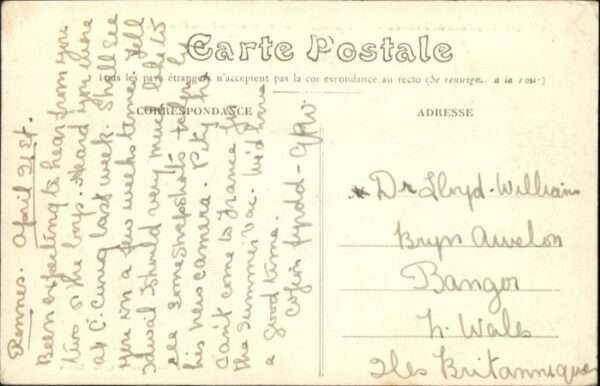 Carte Postale
Tous les pays étrangers n'acceptent pas la correspondance au recto (Se renseigner à la Poste)
CORRESPONDANCE
ADRESSE
Rennes. April 21st.
Been expecting to hear from you
two o' the boys. Heard you were
at C. last week. Shall see
you in a few weeks time. Tell
Idwal I should very much like to
see some snapshots taken by
his new camera. Pity he
can't come to France for
the summer vac. We'd have
a good time.
Cofion fyrdd - G.P.W.
Dr Lloyd-Williams
Bryn Awelon
Bangor
N. Wales
Iles Britanniques